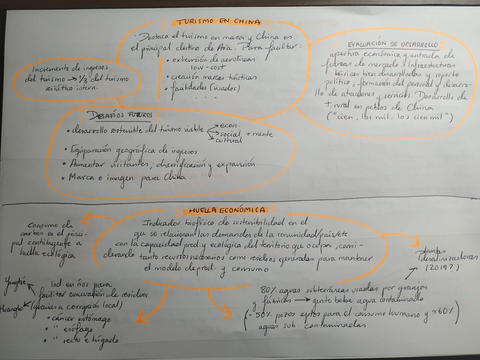 TURISMO EN CHINA
· Destaca el turismo en masa y China es
el principal destino de Asia. Para facilitar:
· extensión de aerolíneas
low-cost
· creación marcas turísticas
· facilidades (visados)
Incremento de ingresos
del turismo → 1/3 del turismo
asiático intern.
EVALUACIÓN DE DESARROLLO
apertura económica y entrada de
fuerzas de mercado, infraestructuras
básicas bien desarrolladas y soporte
político, formación del personal y desarro-
llo de atracciones, servicios. Desarrollo de
t. rural en pueblos de China
("cien, los mil, los cien mil")
DESAFÍOS FUTUROS
· desarrollo sostenible del turismo viable
econ.
social + mente
cultural
· Equiparación geográfica de ingresos
· Aumentar visitantes, diversificación y expansión
· Marca o imagen para China
HUELLA ECONÓMICA
Indicador biofísico de sostenibilidad en el
que se relacionan las demandas de la comunidad/país/etc
con la capacidad prod. y ecológica del territorio que ocupan, consi-
derando tanto recursos necesarios como residuos generados para mantener
el modelo de prod. y consumo
Consumo de
carbón es el princi-
pal contribuyente a
huella ecológica
plantas
desalinizadoras
(2019?)
Yangtsé
Huangho
ind. en ríos para
facilitar evacuación de residuos
(ganancia corrupción local)
· cáncer estómago
· " esófago
· " recto e hígado
80% aguas subterráneas usadas por granjas
fábricas → gente bebe agua contaminada
(-50% pozos aptos para el consumo humano y +60%
aguas sub contaminadas